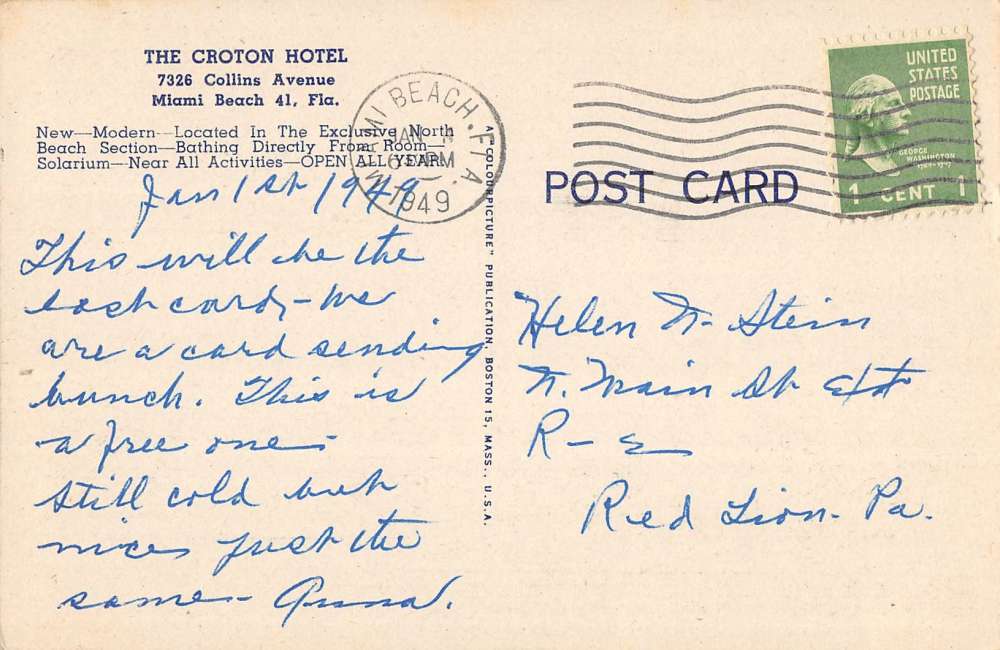 THE CROTON HOTEL
7326 Collins Avenue
Miami Beach 41, Fla.
New—Modern—Located In The Exclusive North
Beach Section—Bathing Directly From Room—
Solarium—Near All Activities—OPEN ALL YEAR.
Jan 1st 1949
This will be the
last card, - We
are a card sending
bunch. This is
a free one -
still cold but
nice just the
same - Anna.
A "COLOURPICTURE" PUBLICATION, BOSTON 15, MASS., U.S.A.
MIAMI BEACH. FLA.
JAN
PM
1949
POST CARD
UNITED
STATES
POSTAGE
GEORGE
WASHINGTON
1 CENT 1
Helen N. Stein
N. Main St Ext
R -
Red Lion. Pa.